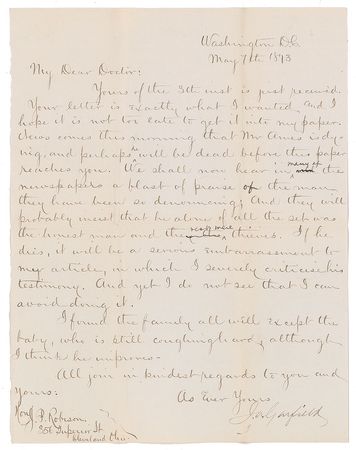 Washington D.C.
May 7th 1873
My Dear Doctor:
Yours of the 5th inst is just received.
Your letter is exactly what I wanted, and I
hope it is not too late to get it into my paper.
News comes this morning that Mr Ames is dy-
ing, and perhaps he will be dead before this paper
reaches you. We shall now hear in many of the
newspapers a blast of praise of the man
they have been so denouncing; And they will
probably insist that he alone of all the set was
the honest man and the rest were thieves. If he
dies, it will be a serious embarrassment to
my article, in which I severely criticise his
testimony. And yet I do not see that I can
avoid doing it.
I found the family all well except the
baby, who is still coughing hard, although
I think he improves—
All join in kindest regards to you and
Yours:
As Ever Yours
J. A. Garfield
Hon J. P. Robison
358 Superior St
Cleveland Ohio.